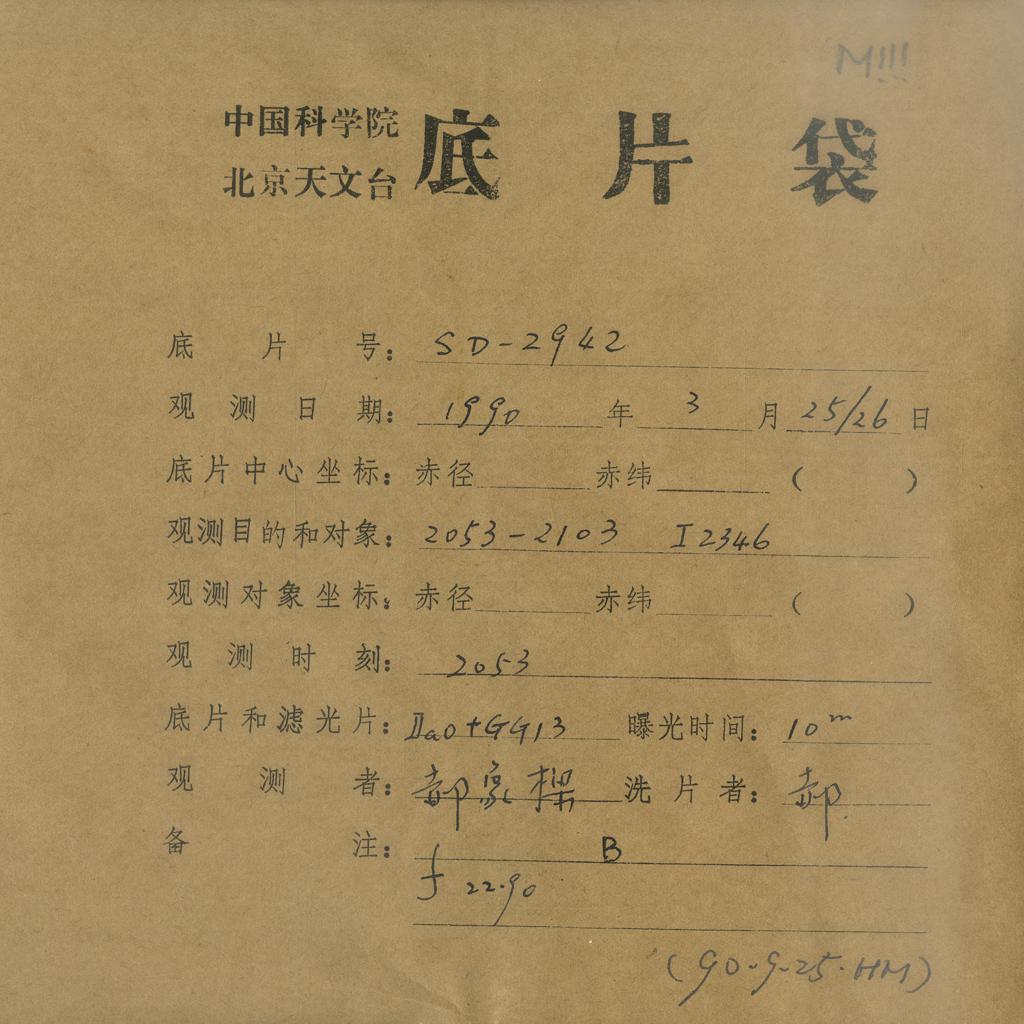 M!!!
中国科学院
北京天文台
底片袋
底片号：SD-2942
观测日期：1990年3月25/26日
底片中心坐标：赤径 赤纬 （ ）
观测目的和对象：2053-2103 I2346
观测对象坐标：赤径 赤纬 （ ）
观测时刻：2053
底片和滤光片：IIaO+GG13 曝光时间：10m
观测者：郝象樑 洗片者：郝
备注：B
f 22.90
(90-9-25.HM)